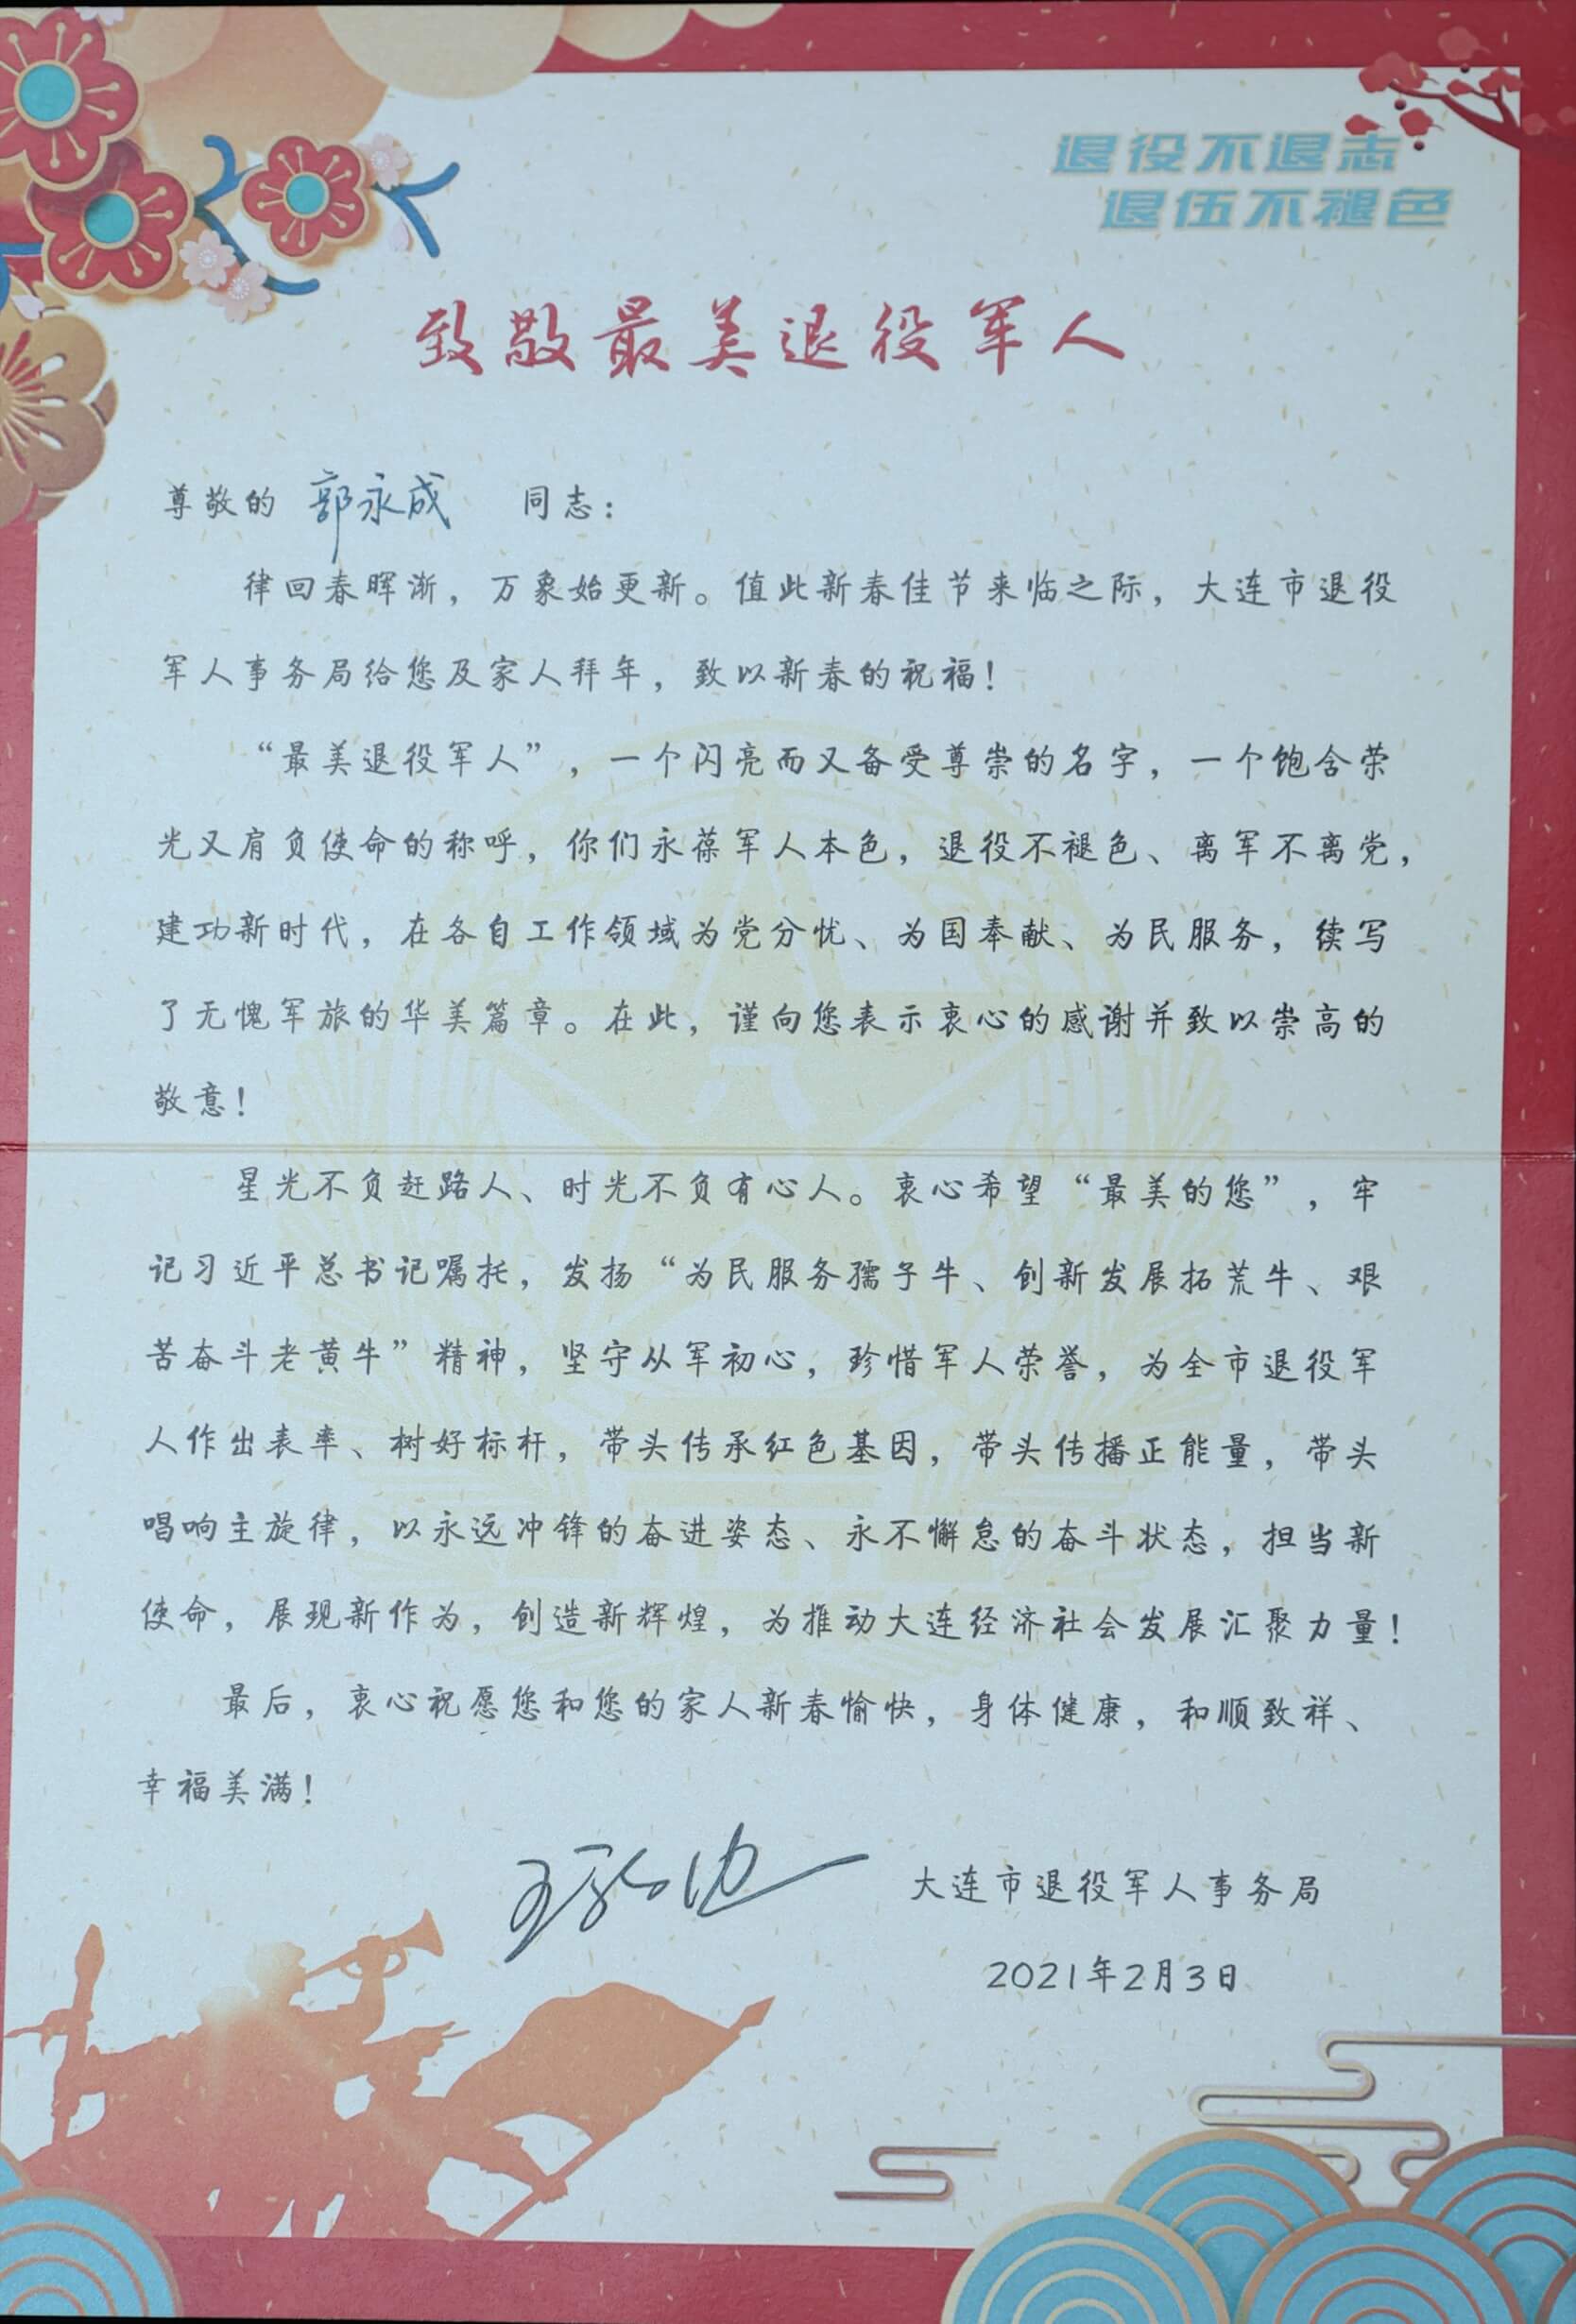 退役不退志
退伍不褪色
致敬最美退役军人
尊敬的 郭永成 同志：
律回春晖渐，万象始更新。值此新春佳节来临之际，大连市退役
军人事务局给您及家人拜年，致以新春的祝福！
“最美退役军人”，一个闪亮而又备受尊崇的名字，一个饱含荣
光又肩负使命的称呼，你们永葆军人本色，退役不褪色、离军不离党，
建功新时代，在各自工作领域为党分忧、为国奉献、为民服务，续写
了无愧军旅的华美篇章。在此，谨向您表示衷心的感谢并致以崇高的
敬意！
星光不负赶路人、时光不负有心人。衷心希望“最美的您”，牢
记习近平总书记嘱托，发扬“为民服务孺子牛、创新发展拓荒牛、艰
苦奋斗老黄牛”精神，坚守从军初心，珍惜军人荣誉，为全市退役军
人作出表率、树好标杆，带头传承红色基因，带头传播正能量，带头
唱响主旋律，以永远冲锋的奋进姿态、永不懈怠的奋斗状态，担当新
使命，展现新作为，创造新辉煌，为推动大连经济社会发展汇聚力量！
最后，衷心祝愿您和您的家人新春愉快，身体健康，和顺致祥、
幸福美满！
大连市退役军人事务局
2021年2月3日